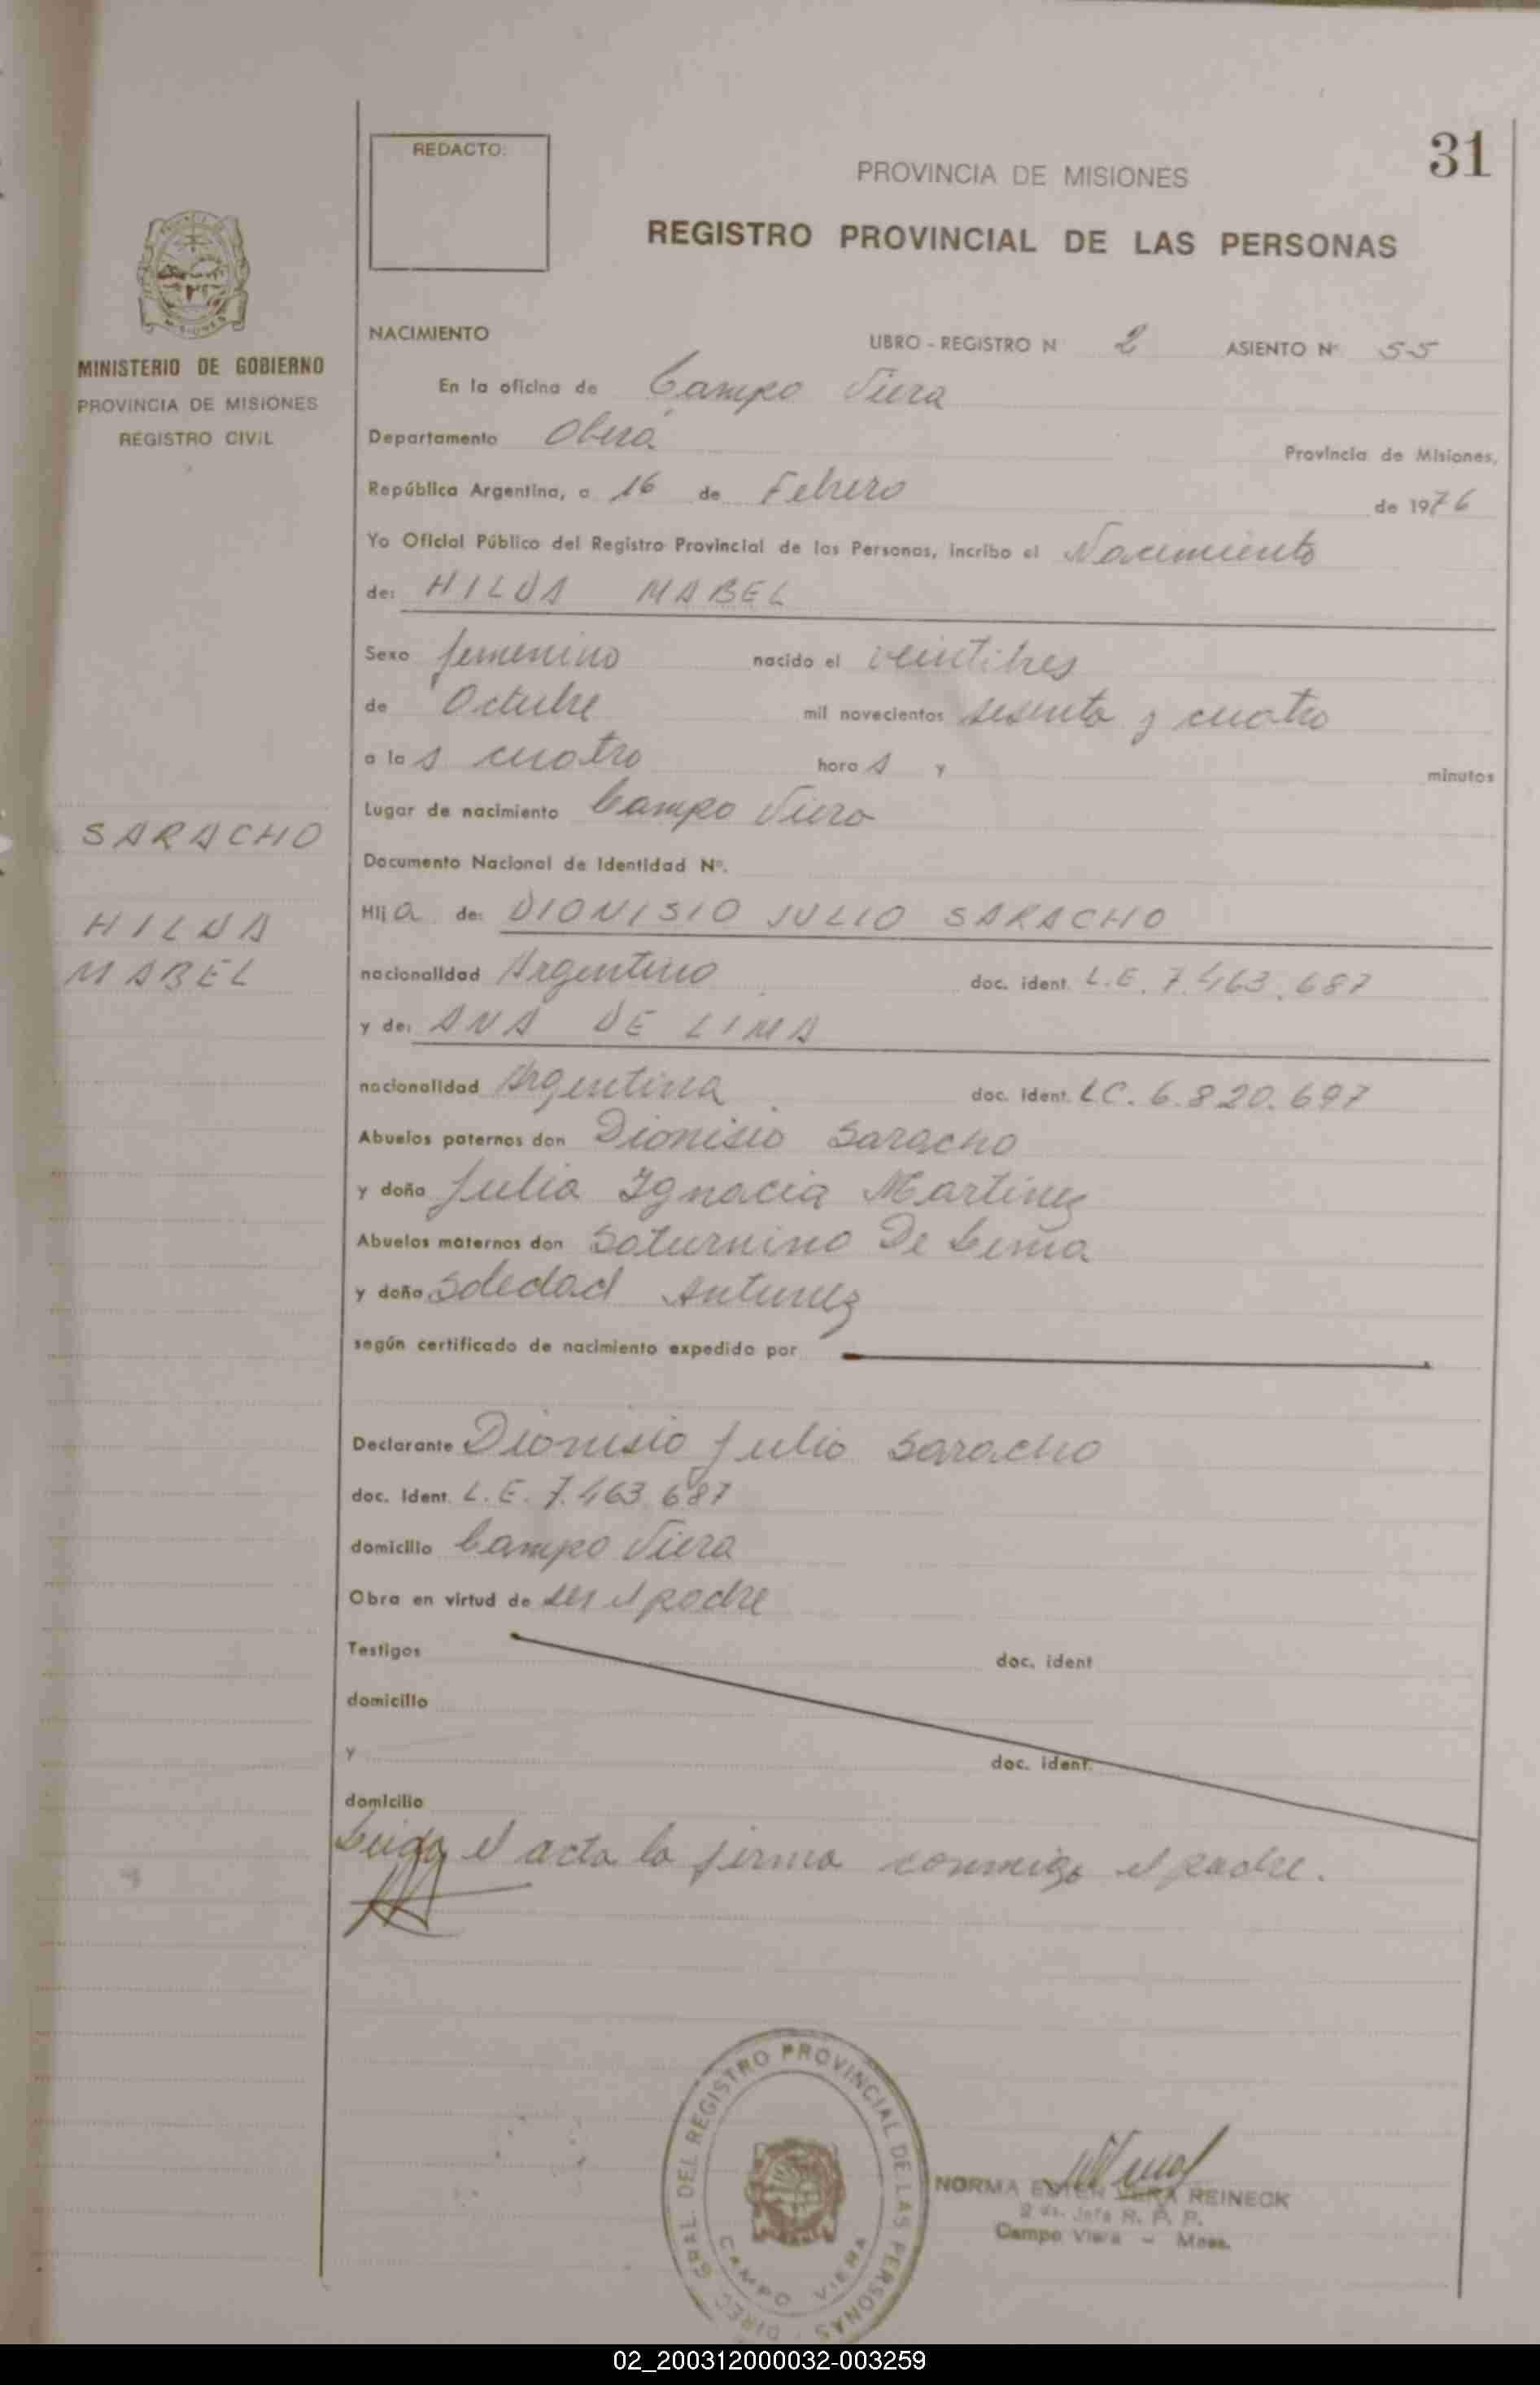 31
REDACTO:
PROVINCIA DE MISIONES
REGISTRO PROVINCIAL DE LAS PERSONAS
MINISTERIO DE GOBIERNO
PROVINCIA DE MISIONES
REGISTRO CIVIL
NACIMIENTO LIBRO - REGISTRO N 2 ASIENTO Nº 55
En la oficina de Campo Viera
Departamento Oberá Provincia de Misiones,
República Argentina, a 16 de Febrero de 1976
Yo Oficial Público del Registro Provincial de las Personas, incribo el Nacimiento
de: HILDA MABEL
Sexo femenino nacido el veintitres
de Octubre mil novecientos sesenta y cuatro
a las cuatro horas y minutos
Lugar de nacimiento Campo Viera
SARACHO
HILDA
MABEL
Documento Nacional de Identidad Nº.
Hija de: DIONISIO JULIO SARACHO
nacionalidad Argentino doc. ident. L.E. 7.463.687
y de: ANA DE LIMA
nacionalidad Argentina doc. ident. LC. 6.820.697
Abuelos paternos don Dionisio Saracho
y doña Julia Ignacia Martinez
Abuelos maternos don Saturnino De Lima
y doña Soledad Antunez
según certificado de nacimiento expedido por
Declarante Dionisio Julio Saracho
doc. Ident. L.E. 7.463.687
domicilio Campo Viera
Obra en virtud de ser el padre
Testigos doc. ident
domicilio
y doc. ident.
domicilio
Leida el acta la firma conmigo el padre.
DIREC. GRAL. DEL REGISTRO PROVINCIAL DE LAS PERSONAS
CAMPO VIERA
NORMA VERA REINECK
Jefa R. P. P.
Campo Viera - Mnes.
02_200312000032-003259